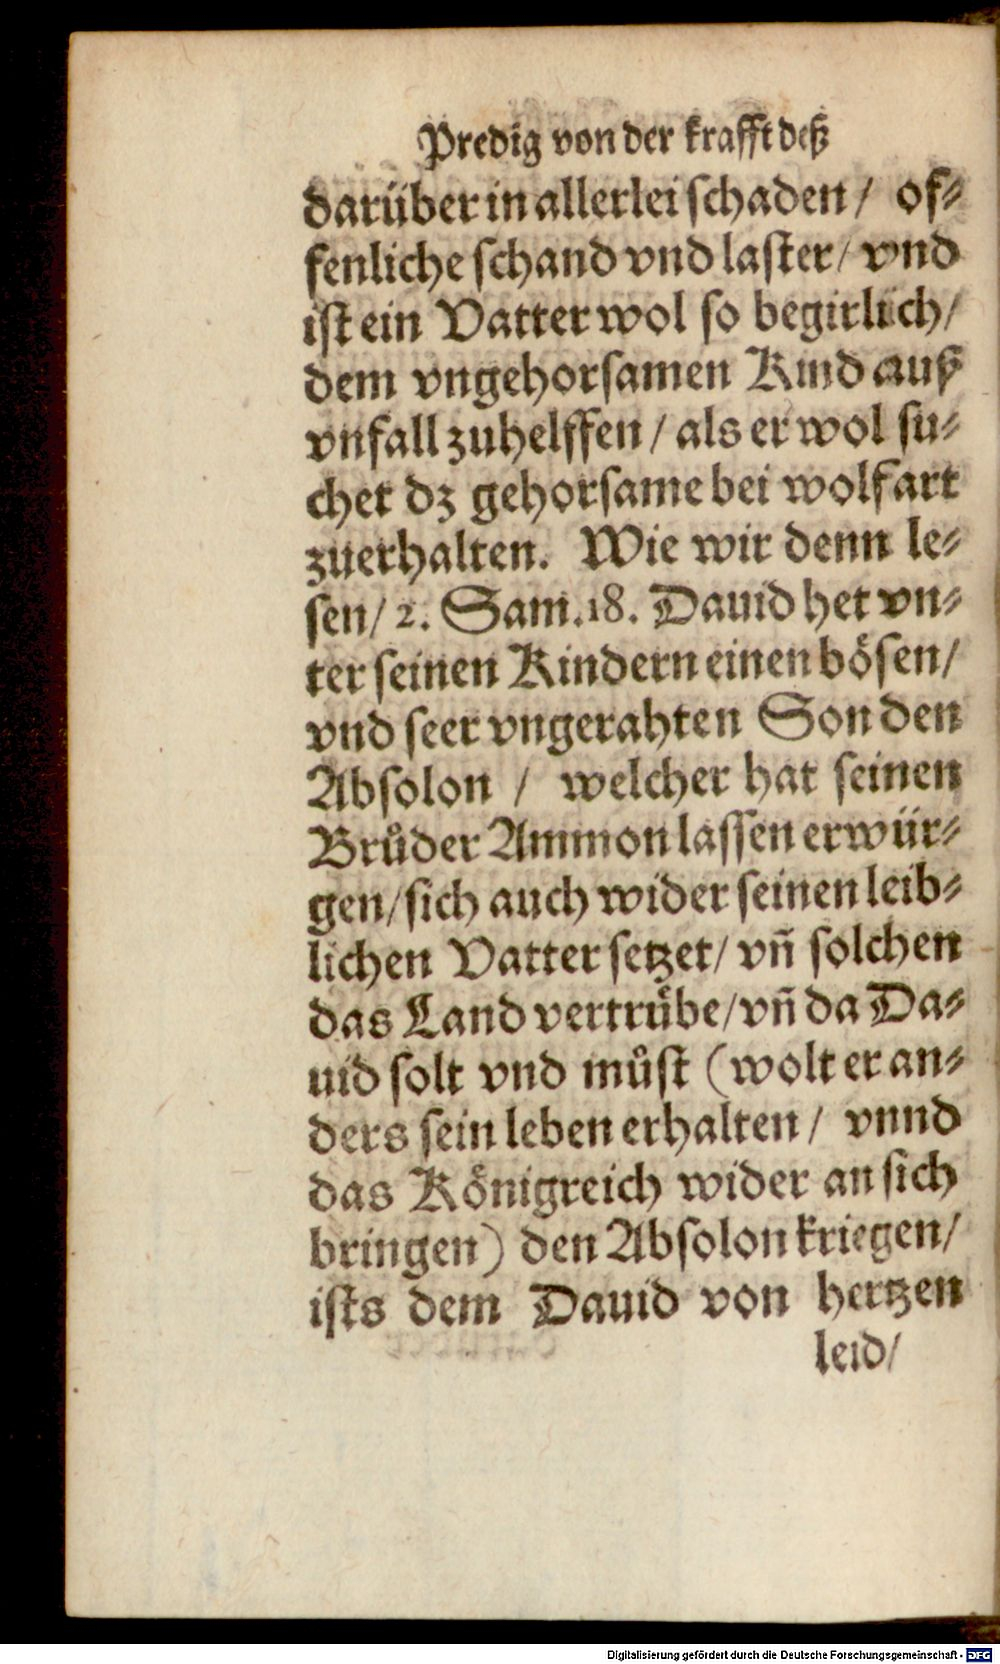 Predig von der krafft deß
darüber in allerlei schaden / of⸗
fenliche schand vnd laster / vnd
ist ein Vatter wol so begirlich /
dem vngehorsamen Kind auß
vnfall zuhelffen / als er wol su⸗
chet dz gehorsame bei wolfart
zuerhalten. Wie wir denn le⸗
sen / 2. Sam. 18. Dauid het vn⸗
ter seinen Kindern einen bösen /
vnd seer vngerahten Son den
Absolon / welcher hat seinen
Brůder Ammon lassen erwür⸗
gen / sich auch wider seinen leib⸗
lichen Vatter setzet / vñ solchen
das Land vertrübe / vñ da Da⸗
uid solt vnd můst (wolt er an⸗
ders sein leben erhalten / vnnd
das Königreich wider an sich
bringen) den Absolon kriegen /
ists dem Dauid von hertzen
leid /
Digitalisierung gefördert durch die Deutsche Forschungsgemeinschaft - DFG